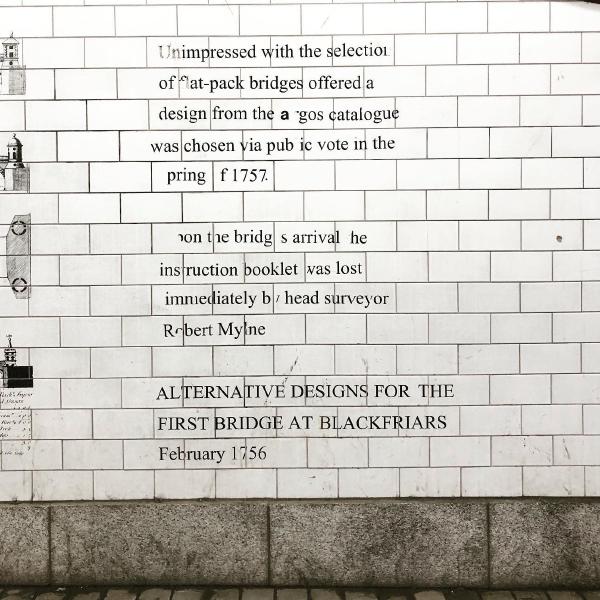 Unimpressed with the selection
of flat-pack bridges offered a
design from the argos catalogue
was chosen via pub ic vote in the
pring f 1757.
pon the bridg s arrival he
instruction booklet was lost
immediately by head surveyor
Robert Mylne
ALTERNATIVE DESIGNS FOR THE
FIRST BRIDGE AT BLACKFRIARS
February 1756